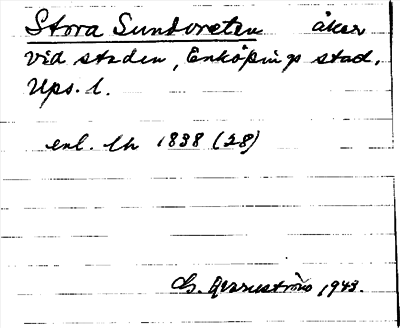 Stora Sundvreten åker
vid staden, Enköpings stad,
Ups. l.
enl. lh 1838 (28)
G. Qvarnström 1943.